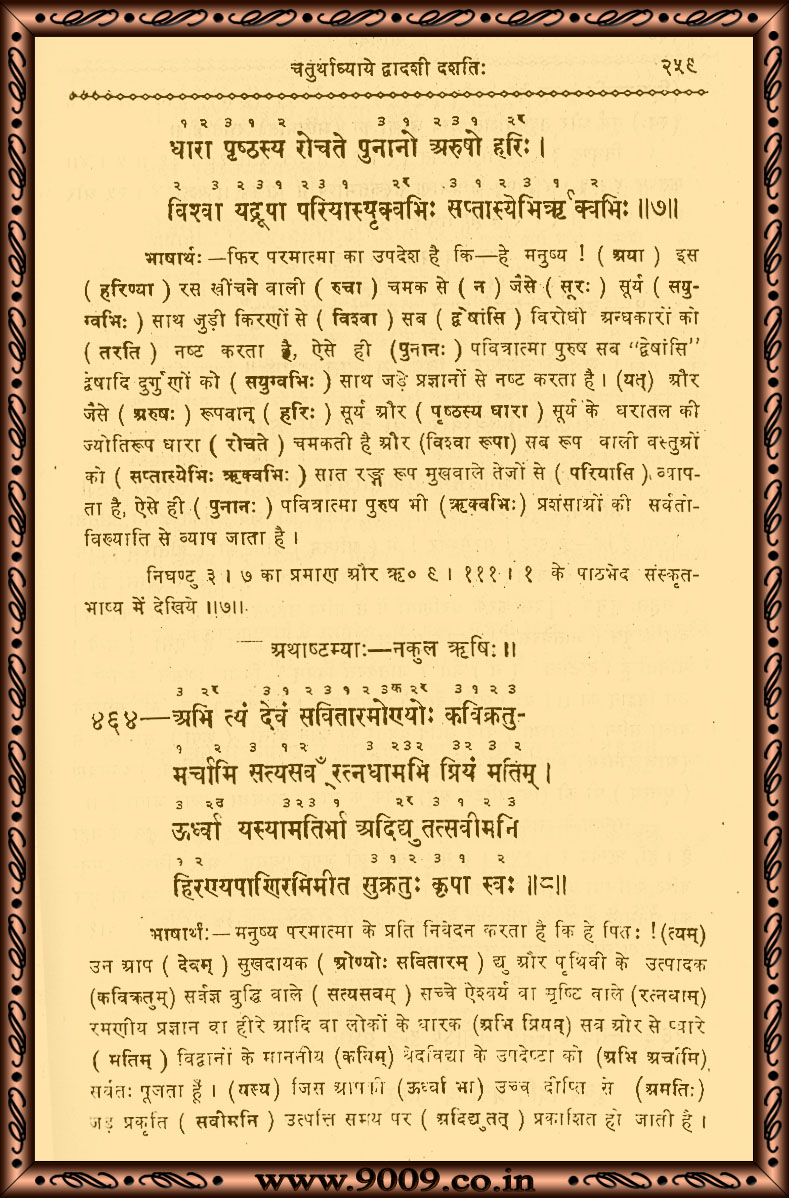 चतुर्थाध्याये द्वादशी दशतिः २५९
१ २ ३ १ २ ३ १ २ ३ १ २र
धारा पृष्ठस्य रोचते पुनानो अरुषो हरिः ।
२ ३ २ ३ १ २ ३ १ २र ३ १ २ ३ १ २
विश्वा यद्रूपा परियास्यृक्वभिः सप्तास्येभिर्ऋक्वभिः ॥७॥
भाषार्थः—फिर परमात्मा का उपदेश है कि—हे मनुष्य ! ( अया ) इस
( हरिण्या ) रस खींचने वाली ( रुचा ) चमक से ( न ) जैसे ( सूरः ) सूर्य ( सयु-
ग्वभिः ) साथ जुड़ी किरणों से ( विश्वा ) सब ( द्वेषांसि ) विरोधी अन्धकारों को
( तरति ) नष्ट करता है, ऐसे ही (पुनानः ) पवित्रात्मा पुरुष सब “द्वेषांसि”
द्वेषादि दुर्गुणों को ( सयुग्वभिः ) साथ जड़े प्रज्ञानों से नष्ट करता है । (यत्) और
जैसे ( अरुषः ) रूपवान् ( हरिः ) सूर्य और ( पृष्ठस्य धारा ) सूर्य के धरातल की
ज्योतिरूप धारा ( रोचते ) चमकती है और (विश्वा रूपा) सब रूप वाली वस्तुओं
को ( सप्तास्येभिः ऋक्वभिः ) सात रङ्ग रूप मुखवाले तेजों से ( परियासि ) व्याप-
ता है, ऐसे ही ( पुनानः ) पवित्रात्मा पुरुष भी (ऋक्वभिः) प्रशंसाओं की सर्वतो-
विख्याति से व्याप जाता है ।
निघण्टु ३ । ७ का प्रमाण और ऋ० ९ । १११ । १ के पाठभेद संस्कृत-
भाष्य में देखिये ॥७॥
अथाष्टम्याः—नकुल ऋषिः ॥
३ २र ३ १ २ ३ १ २ ३क २र ३ १ २ ३
४६४—अभि त्यं देवं सवितारमोण्योः कविक्रतु-
१ २ ३ १ २ ३ २३२ ३२ ३ २
मर्चामि सत्यसवँ रत्नधामभि प्रियं मतिम् ।
३ २उ ३२३ १ २र ३ १ २ ३
ऊर्ध्वा यस्यामतिर्भा अदिद्युतत्सवीमनि
१ २ ३ १ २ ३ १ २
हिरण्यपाणिरमिमीत सुक्रतुः कृपा स्वः ॥८॥
भाषार्थः—मनुष्य परमात्मा के प्रति निवेदन करता है कि हे पितः ! (त्यम्)
उन आप ( देवम् ) सुखदायक ( ओण्योः सवितारम् ) द्यु और पृथिवी के उत्पादक
(कविक्रतुम्) सर्वज्ञ बुद्धि वाले ( सत्यसवम् ) सच्चे ऐश्वर्य वा सृष्टि वाले (रत्नधाम्)
रमणीय प्रज्ञान वा हीरे आदि वा लोकों के धारक (अभि प्रियम्) सब ओर से प्यारे
( मतिम् ) विद्वानों के माननीय (कविम्) वेदविद्या के उपदेष्टा को (अभि अर्चामि)
सर्वतः पूजता हूँ । (यस्य) जिस आपकी (ऊर्ध्वा भा) उच्च दीप्ति से (अमतिः)
जड़ प्रकृति ( सवीमनि ) उत्पत्ति समय पर ( अदिद्युतत् ) प्रकाशित हो जाती है ।
www.9009.co.in